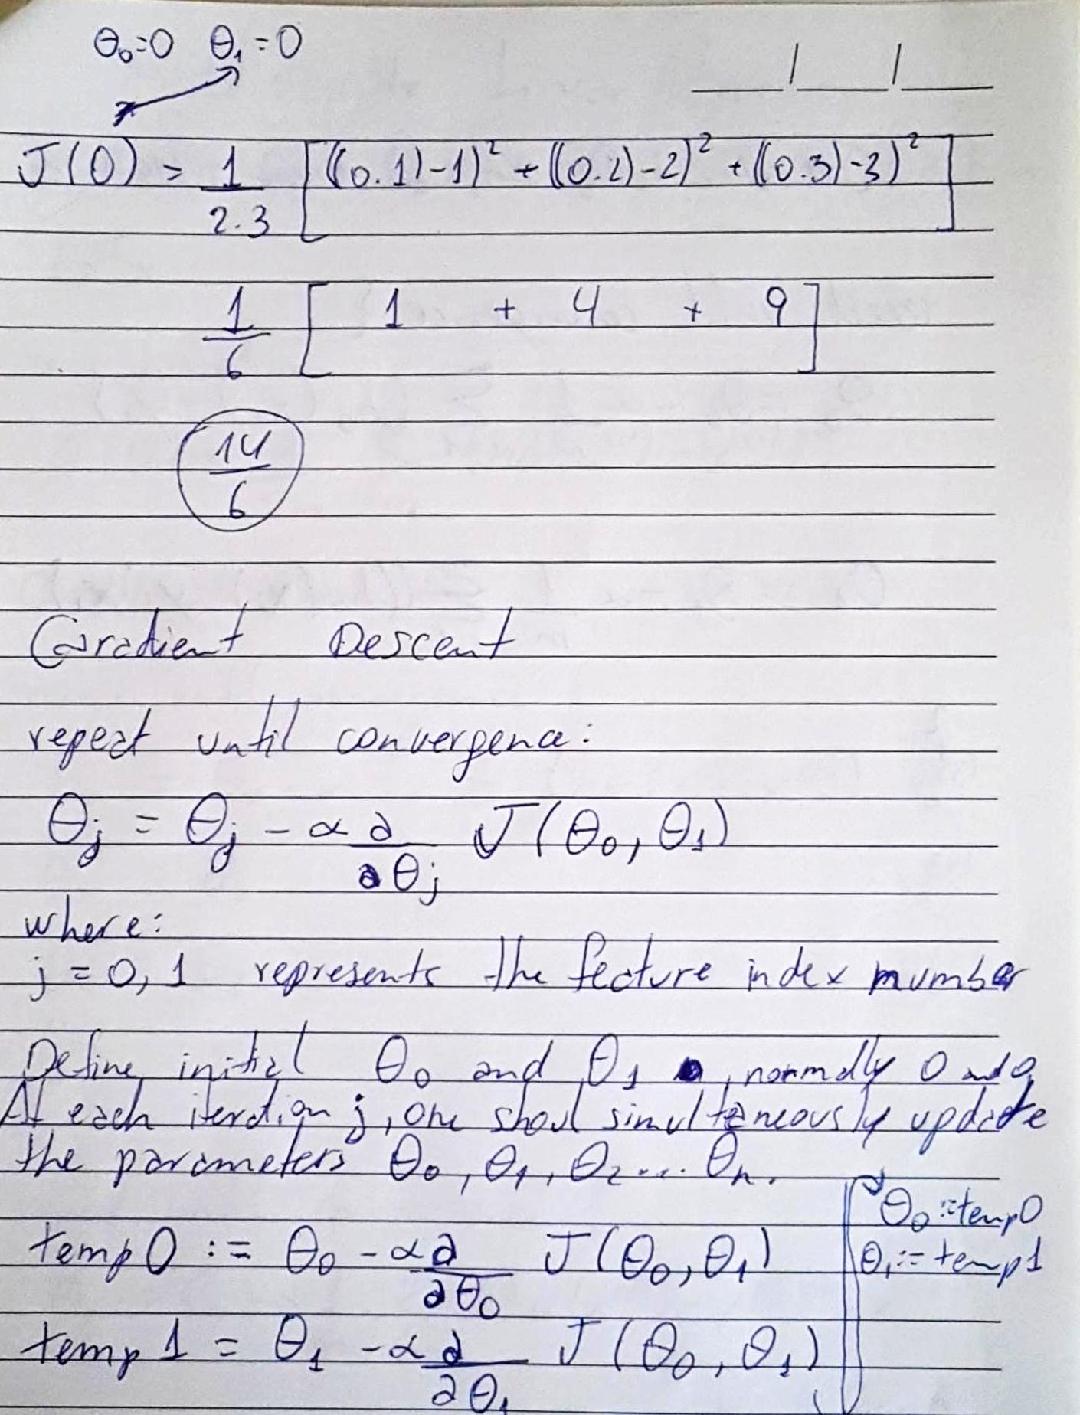 θ₀=0 θ₁=0
J(0) = 1/2.3 [((0.1)-1)² + ((0.2)-2)² + ((0.3)-3)²]
1/6 [1 + 4 + 9]
14/6
Gradient Descent
repeat until convergence:
θj = θj - α ∂/∂θj J(θ₀, θ₁)
where:
j = 0, 1 represents the feature index number
Define initial θ₀ and θ₁, normally 0 and 0
At each iteration j, one shoul simultaneously update
the parameters θ₀, θ₁, θ₂... θn.
θ₀ := temp0
θ₁ := temp1
temp0 := θ₀ - α ∂/∂θ₀ J(θ₀, θ₁)
temp1 = θ₁ - α ∂/∂θ₁ J(θ₀, θ₁)